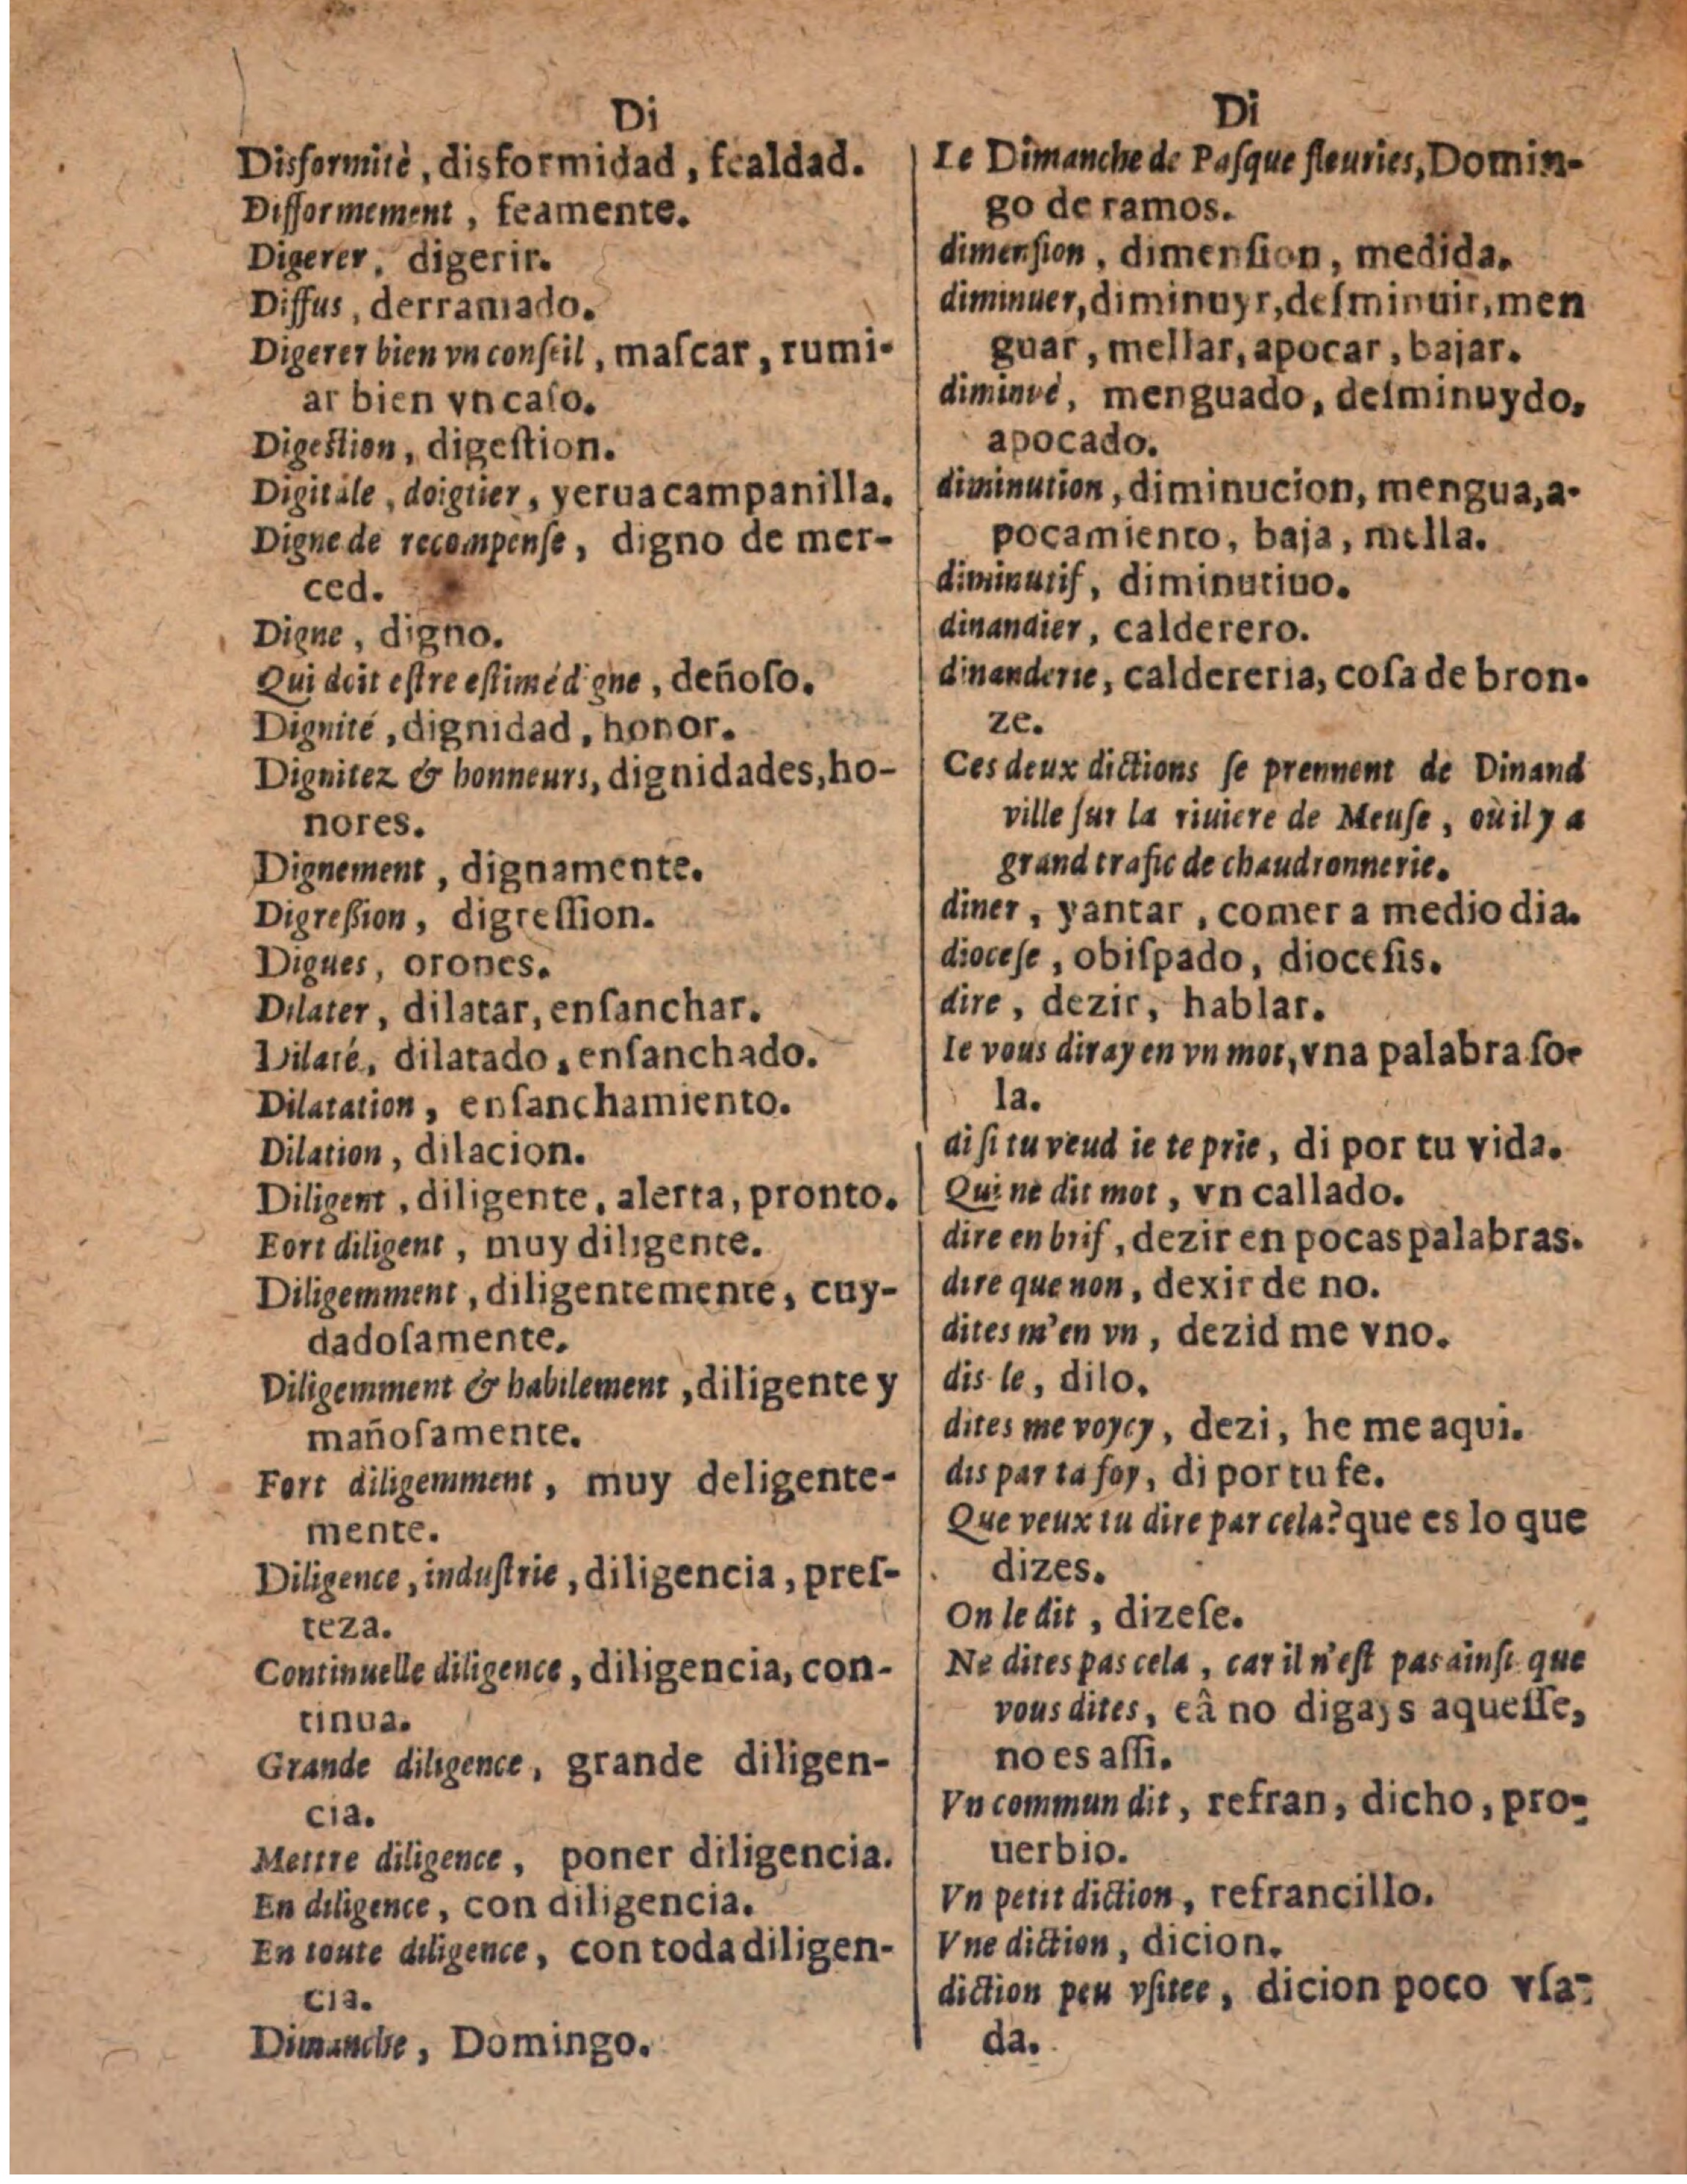 Di
Disformitè, disformidad, fealdad.
Difformement, feamente.
Digerer, digerir.
Diffus, derramado.
Digerer bien vn conſeil, maſcar, rumi-
ar bien vn caſo.
Digeſtion, digeſtion.
Digitale, doigtier, yerua campanilla.
Digne de recompenſe, digno de mer-
ced.
Digne, digno.
Qui doit eſtre eſtimé digne, deñoſo.
Dignité, dignidad, honor.
Dignitez & honneurs, dignidades, ho-
nores.
Dignement, dignamente.
Digreßion, digreſſion.
Digues, orones.
Dilater, dilatar, enſanchar.
Dilaté, dilatado, enſanchado.
Dilatation, enſanchamiento.
Dilation, dilacion.
Diligent, diligente, alerta, pronto.
Fort diligent, muy diligente.
Diligemment, diligentemente, cuy-
dadoſamente.
Diligemment & habilement, diligente y
mañoſamente.
Fort diligemment, muy deligente-
mente.
Diligence, induſtrie, diligencia, preſ-
teza.
Continuelle diligence, diligencia, con-
tinua.
Grande diligence, grande diligen-
cia.
Mettre diligence, poner diligencia.
En diligence, con diligencia.
En toute diligence, con toda diligen-
cia.
Dimanche, Domingo.
Di
Le Dimanche de Paſque fleuries, Domin-
go de ramos.
dimenſion, dimenſion, medida.
diminuer, diminuyr, deſminuir, men
guar, mellar, apocar, bajar.
diminué, menguado, deſminuydo,
apocado.
diminution, diminucion, mengua, a-
pocamiento, baja, mella.
diminutif, diminutiuo.
dinandier, calderero.
dinanderie, caldereria, coſa de bron-
ze.
Ces deux dictions ſe prennent de Dinand
ville ſur la riuiere de Meuſe, où il y a
grand trafic de chaudronnerie.
diner, yantar, comer a medio dia.
dioceſe, obiſpado, dioceſis.
dire, dezir, hablar.
Ie vous diray en vn mot, vna palabra ſo-
la.
di ſi tu veud ie te prie, di por tu vida.
Qui ne dit mot, vn callado.
dire en brif, dezir en pocas palabras.
dire que non, dexir de no.
dites m'en vn, dezid me vno.
dis-le, dilo.
dites me voycy, dezi, he me aqui.
dis par ta foy, di por tu fe.
Que veux tu dire par cela? que es lo que
dizes.
On le dit, dizeſe.
Ne dites pas cela, car il n'eſt pas ainſi que
vous dites, eâ no digays aqueſſe,
no es aſſi.
Vn commun dit, refran, dicho, pro-
uerbio.
Vn petit diction, refrancillo.
Vne diction, dicion.
diction peu vſitee, dicion poco vſa-
da.